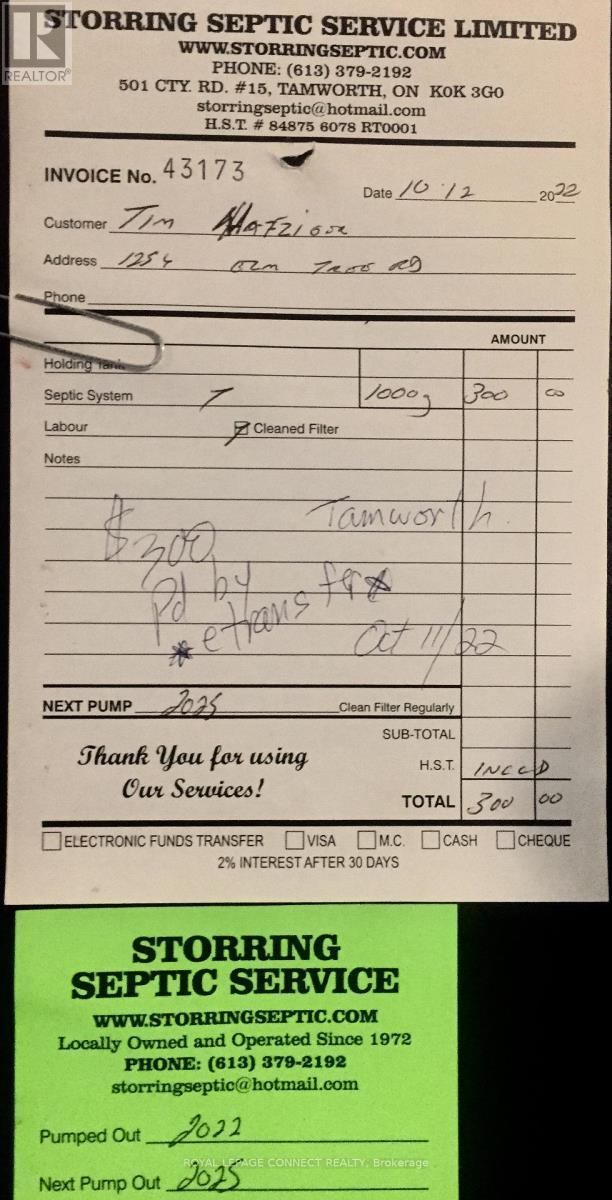 STORRING SEPTIC SERVICE LIMITED
WWW.STORRINGSEPTIC.COM
PHONE: (613) 379-2192
501 CTY. RD. #15, TAMWORTH, ON K0K 3G0
storringseptic@hotmail.com
H.S.T. # 84875 6078 RT0001
R
REALTOR®
INVOICE No. 43173
Date 10 12 2022
Customer Tim
Address 1254 Elm Tree Rd
Phone
AMOUNT
Holding Tank
Septic System 1000g 300 00
Labour Cleaned Filter
Notes
Tamworth
$300
Pd by
*etransfer*
Oct 11/22
NEXT PUMP 2025 Clean Filter Regularly
SUB-TOTAL
Thank You for using
Our Services!
H.S.T. INCCD
TOTAL 300 00
ELECTRONIC FUNDS TRANSFER VISA M.C. CASH CHEQUE
2% INTEREST AFTER 30 DAYS
STORRING
SEPTIC SERVICE
WWW.STORRINGSEPTIC.COM
Locally Owned and Operated Since 1972
PHONE: (613) 379-2192
storringseptic@hotmail.com
Pumped Out 2022
ROYAL LEPAGE CONNECT REALTY, Brokerage
Next Pump Out 2025